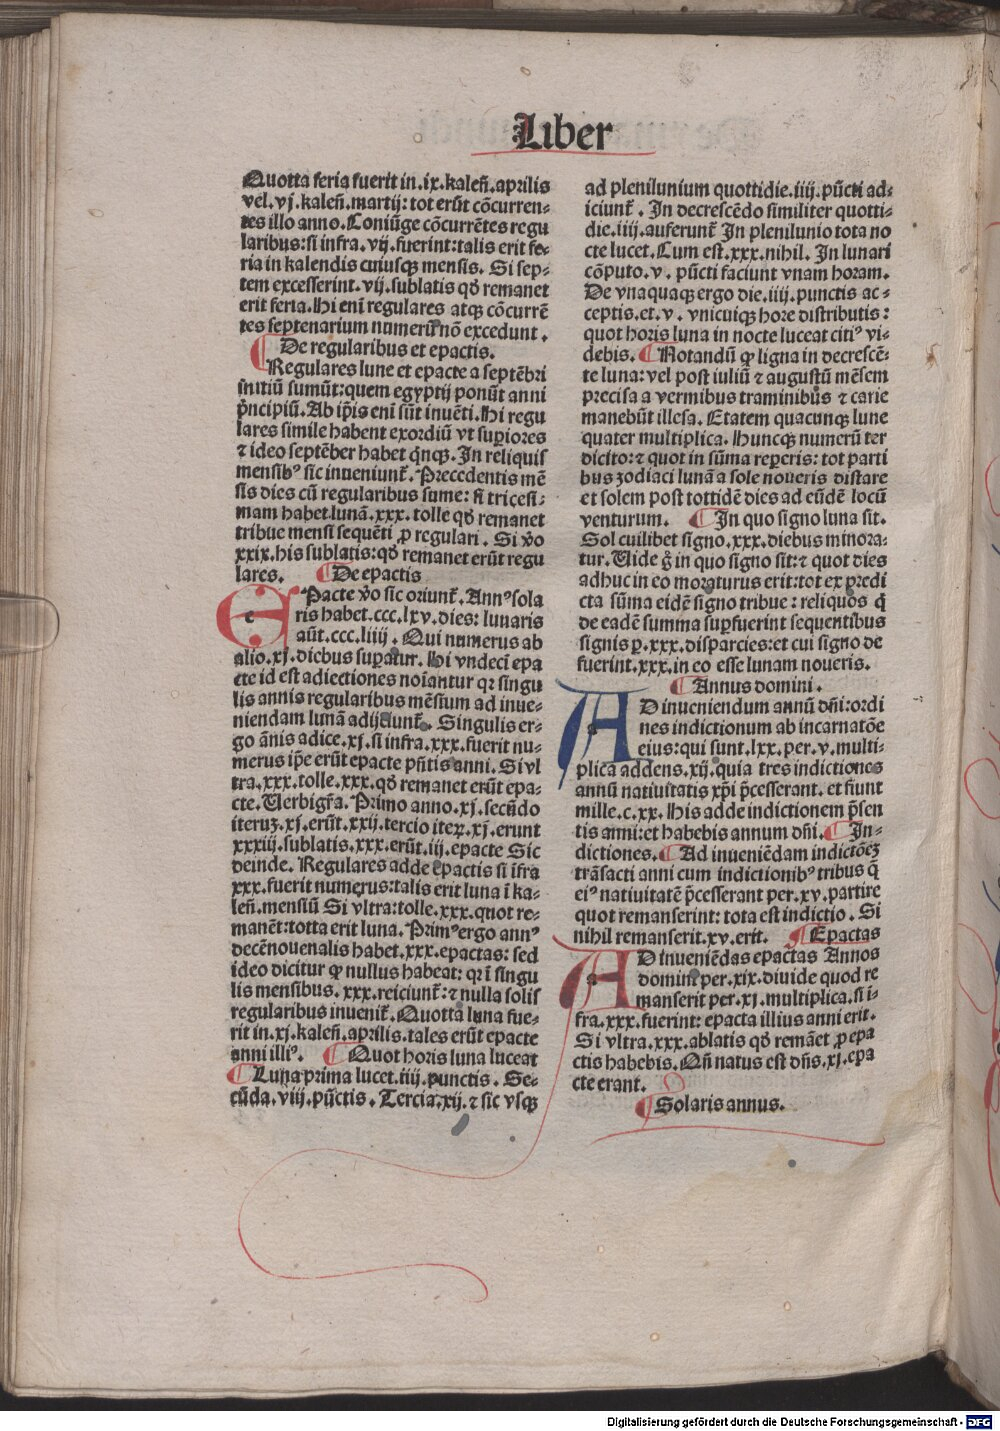 Liber
Quotta feria fuerit in.ix.kaleñ.aprilis
vel.vj.kaleñ.martij: tot erũt cõcurren-
tes illo anno.Coniũge cõcurrẽtes regu
laribus:si infra.vij.fuerint:talis erit fe-
ria in kalendis cuiusqꝫ mensis. Si sep-
tem excesserint.vij.sublatis qđ remanet
erit feria.Hi enĩ regulares atqꝫ cõcurrẽ
tes septenarium numerũ nõ excedunt.
¶ De regularibus et epactis.
Regulares lune et epacte a septẽbri
initiũ sumũt:quem egyptij ponũt anni
p̃ncipiũ.Ab ip̃is enĩ sũt inuẽti.Hi regu
lares simile habent exordiũ vt supiores
⁊ ideo septẽber habet q̃nqꝫ.In reliquis
mensibꝰ sic inueniunt̃.Precedentis mẽ
sis dies cũ regularibus sume: si tricesi-
mam habet lunã.xxx.tolle qđ remanet
tribue mensi sequẽti ꝓ regulari. Si v̊o
xxix.his sublatis:qđ remanet erũt regu
lares. ¶ De epactis
EPacte v̊o sic oriunt̃.Annꝰ sola
ris habet.ccc.lxv.dies: lunaris
aũt.ccc.liiij. Qui numerus ab
alio.xj.diebus supatur.Hi vndecĩ epa
cte id est adiectiones noĩantur qꝛ singu
lis annis regularibus mẽsium ad inue-
niendam lunã adijciunt̃. Singulis er-
go ãnis adice.xj.si infra.xxx.fuerit nu-
merus ip̃e erũt epacte pñtis anni.Si vl
tra.xxx.tolle.xxx.qđ remanet erũt epa-
cte.Uerbigr̃a.Primo anno.xj.secũdo
iteruꝫ.xj.erũt.xxij.tercio iteꝝ.xj.erunt
xxxiij.sublatis.xxx.erũt.iij.epacte Sic
deinde. Regulares adde epactis si ĩfra
xxx.fuerit numerus:talis erit luna ĩ ka-
leñ.mensiũ Si vltra:tolle.xxx.quot re-
manẽt:totta erit luna.Primꝰ ergo annꝰ
decẽnouenalis habet.xxx.epactas: sed
ideo dicitur ꝙ nullus habeat: qꝛ ĩ singu
lis mensibus. xxx.reiciunt̃:⁊ nulla solis
regularibus inuenit̃.Quotta luna fue-
rit in.xj.kaleñ.aprilis.tales erũt epacte
anni illiꝰ. ¶ Quot horis luna luceat
¶ Luna prima lucet.iiij.punctis. Se-
cũda.viij.pũctis. Tercia.xij.⁊ sic vsqꝫ
ad plenilunium quottidie.iiij.pũcti ad-
iciunt̃. In decrescẽdo similiter quotti-
die.iiij.auferunt̃ In plenilunio tota no
cte lucet.Cum est.xxx.nihil. In lunari
cõputo.v. pũcti faciunt vnam horam.
De vnaquaqꝫ ergo die.iiij.punctis ac-
ceptis.et.v. vnicuiqꝫ hore distributis:
quot horis luna in nocte luceat citiꝰ vi-
debis. ¶ Notandũ ꝙ ligna in decrescẽ-
te luna:vel post iuliũ ⁊ augustũ mẽsem
precisa a vermibus traminibus ⁊ carie
manebũt illesa. Etatem quacunqꝫ lune
quater multiplica. Huncqꝫ numerũ ter
dicito:⁊ quot in sũma reperis: tot parti
bus zodiaci lunã a sole noueris distare
et solem post tottidẽ dies ad eũdẽ locũ
venturum. ¶ In quo signo luna sit.
Sol cuilibet signo.xxx.diebus minora-
tur. Uide g̊ in quo signo sit:⁊ quot dies
adhuc in eo moraturus erit:tot ex predi
cta sũma eidẽ signo tribue: reliquos q̃
de eadẽ summa supfuerint sequentibus
signis p.xxx.disparcies:et cui signo de
fuerint.xxx.in eo esse lunam noueris.
¶ Annus domini.
AD inueniendum annũ dñi:ordi
nes indictionum ab incarnatõe
eius:qui sunt.lxx.per.v.multi-
plica addens.xij.quia tres indictiones
annũ natiuitatis xp̃i p̃cesserant.et fiunt
mille.c.xx. His adde indictionem p̃sen
tis anni:et habebis annum dñi.¶ In-
dictiones.¶ Ad inueniẽdam indictõeꝫ
trãsacti anni cum indictionibꝰ tribus q̃
eiꝰ natiuitatẽ p̃cesserant per.xv.partire
quot remanserint: tota est indictio. Si
nihil remanserit.xv.erit. ¶ Epactas
AD inueniẽdas epactas Annos
domini per.xix.diuide quod re
manserit per.xj.multiplica.si ĩ-
fra.xxx.fuerint: epacta illius anni erit.
Si vltra.xxx.ablatis qđ remãet ꝓ epa
ctis habebis. Qñ natus est dñs.xj.epa
cte erant.
¶ Solaris annus.
Digitalisierung gefördert durch die Deutsche Forschungsgemeinschaft - DFG